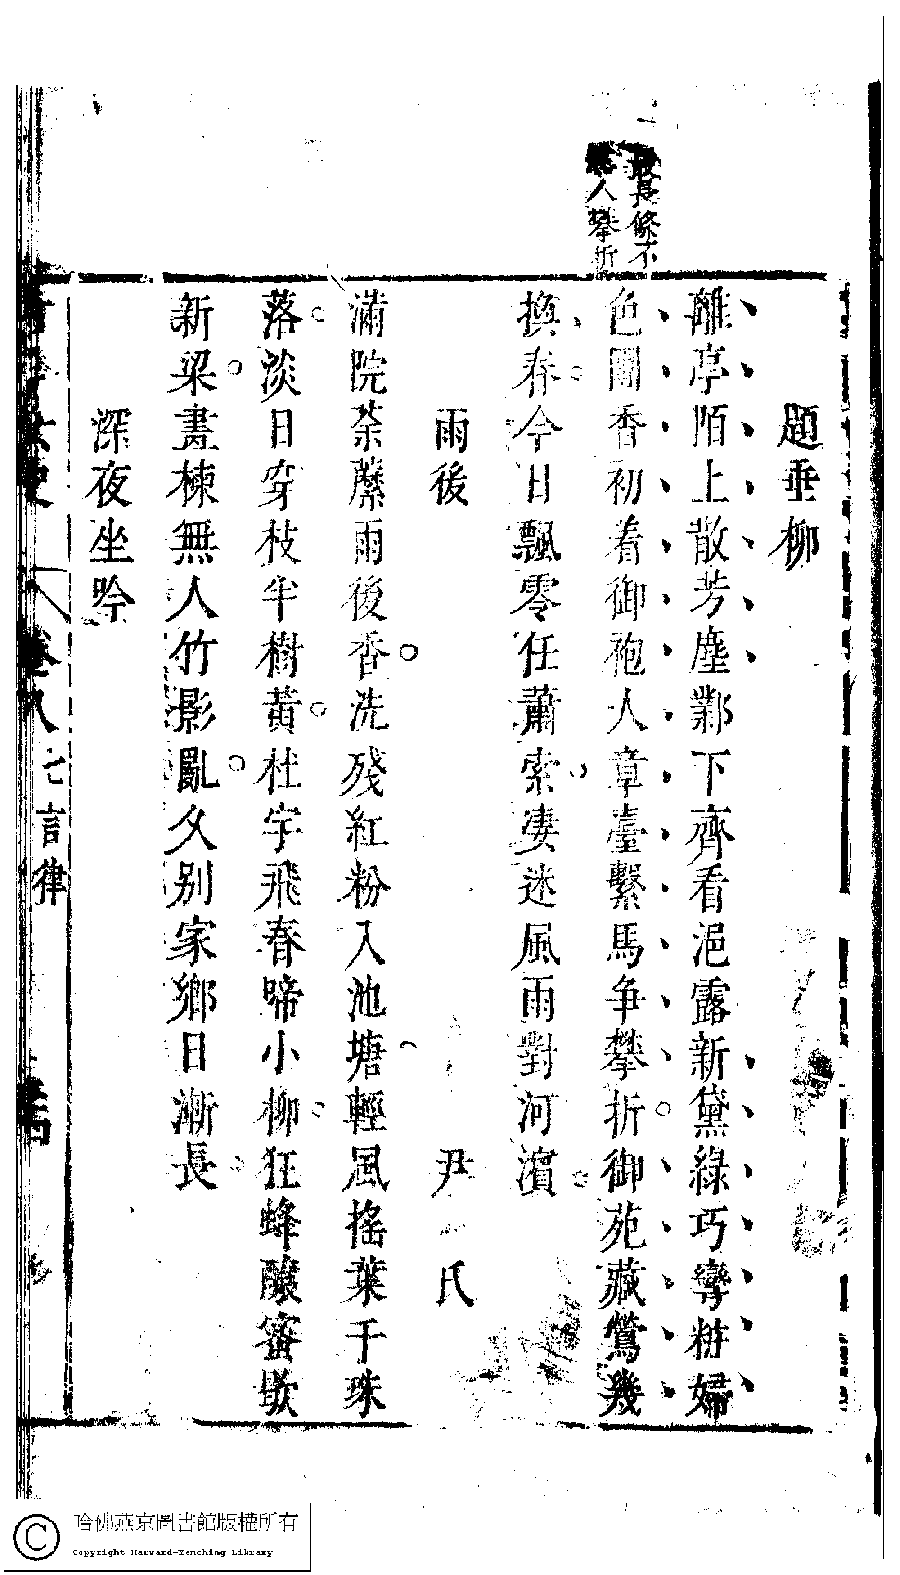 最長條不
人攀折
題垂柳
離亭陌上散芳塵鄴下齊看浥露新黛綠巧彎粧婦
色團香初着御袍人章臺繫馬争攀折御苑藏鶯幾
換春今日飄零任蕭索凄迷風雨對河濵
雨後 尹氏
滿院荼蘼雨後香洗殘紅粉入池塘輕風搖葉千珠
落淡日穿枝半樹黃杜宇飛春啼小柳狂蜂釀蜜歇
新梁畫棟無人竹影亂久別家鄉日漸長
深夜坐吟
卷八 七言律
哈佛燕京圖書館版權所有
Copyright Harvard-Yenching Library